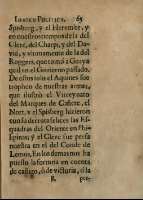 IDEA DE POLITICA. 65
Spilberg, y el Heremite, y
en nuestros tiempos de la del
Clerc, del Charp, y del Da-
vid, y vltimamente de la del
Roggers, que tomó a Guaya
quil en el Govierno passado.
De estos solo el Aquines fue
trophèo de nuestras armas,
que ilustrò el Virreynato
del Marques de Cañete, el
Nort, y el Spilberg hizieron
con su derrota felices las Es-
quadras del Oriente en Phi-
lipinas; y el Clerc fue presa
nuestra en el del Conde de
Lemos. En los demas nos ha
puesto la fortuna en cuenta
de castigo, ò de victoria, ò la
R pre-